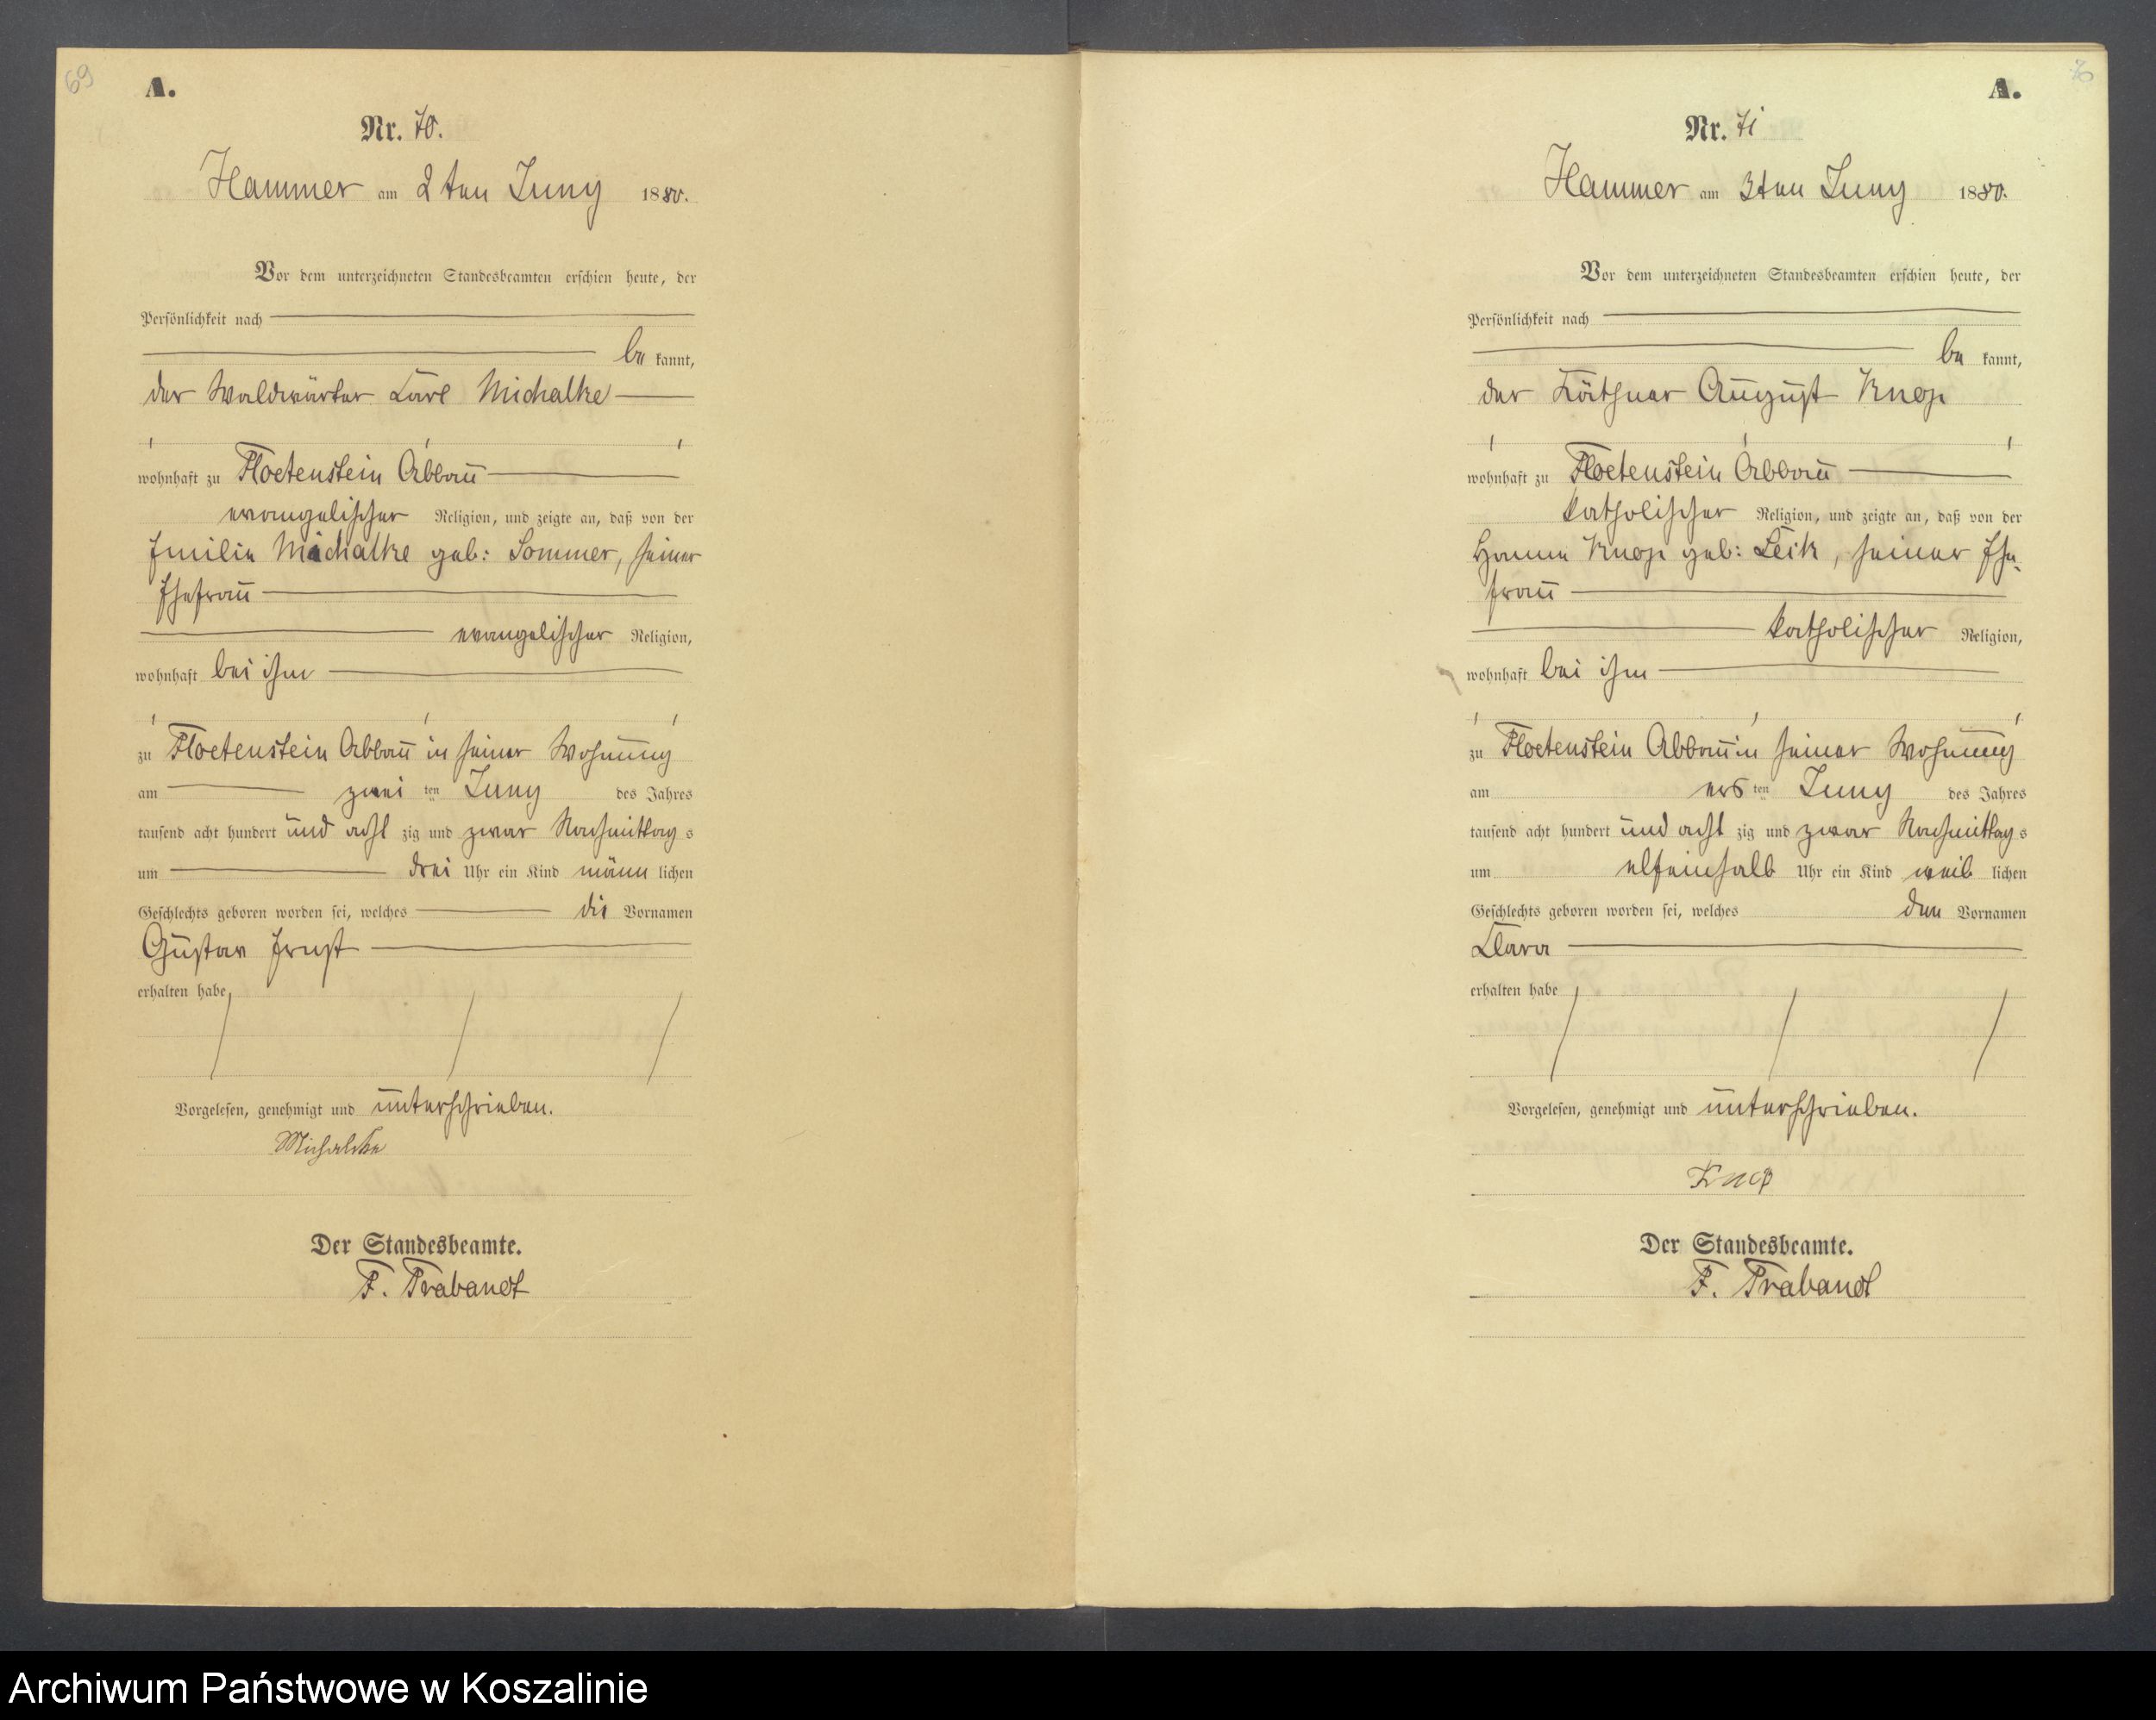 69
A.
Nr. 70.
Hammer am 2ten Juny 1880.
Vor dem unterzeichneten Standesbeamten erschien heute, der
Persönlichkeit nach
be kannt,
der Waldwärter Carl Michalke
wohnhaft zu Floetenstein Abbau
evangelischer Religion, und zeigte an, daß von der
Emilie Michalke geb: Sommer, seiner
Ehefrau
evangelischer Religion,
wohnhaft bei ihm
zu Floetenstein Abbau in seiner Wohnung
am zwei ten Juny des Jahres
tausend acht hundert und acht zig und zwar Nachmittag s
um drei Uhr ein Kind männ lichen
Geschlechts geboren worden sei, welches die Vornamen
Gustav Ernst
erhalten habe
Vorgelesen, genehmigt und unterschrieben.
Michalke
Der Standesbeamte.
F. Trabandt
70
A.
Nr. 71
Hammer am 3ten Juny 1880.
Vor dem unterzeichneten Standesbeamten erschien heute, der
Persönlichkeit nach
be kannt,
der Käthner August Knop
wohnhaft zu Floetenstein Abbau
katholischer Religion, und zeigte an, daß von der
Hanna Knop geb: Leik, seiner Ehe-
frau
katholischer Religion,
wohnhaft bei ihm
zu Floetenstein Abbau in seiner Wohnung
am ers ten Juny des Jahres
tausend acht hundert und acht zig und zwar Nachmittag s
um elfeinhalb Uhr ein Kind weib lichen
Geschlechts geboren worden sei, welches den Vornamen
Clara
erhalten habe
Vorgelesen, genehmigt und unterschrieben.
Knop
Der Standesbeamte.
F. Trabandt
Archiwum Państwowe w Koszalinie